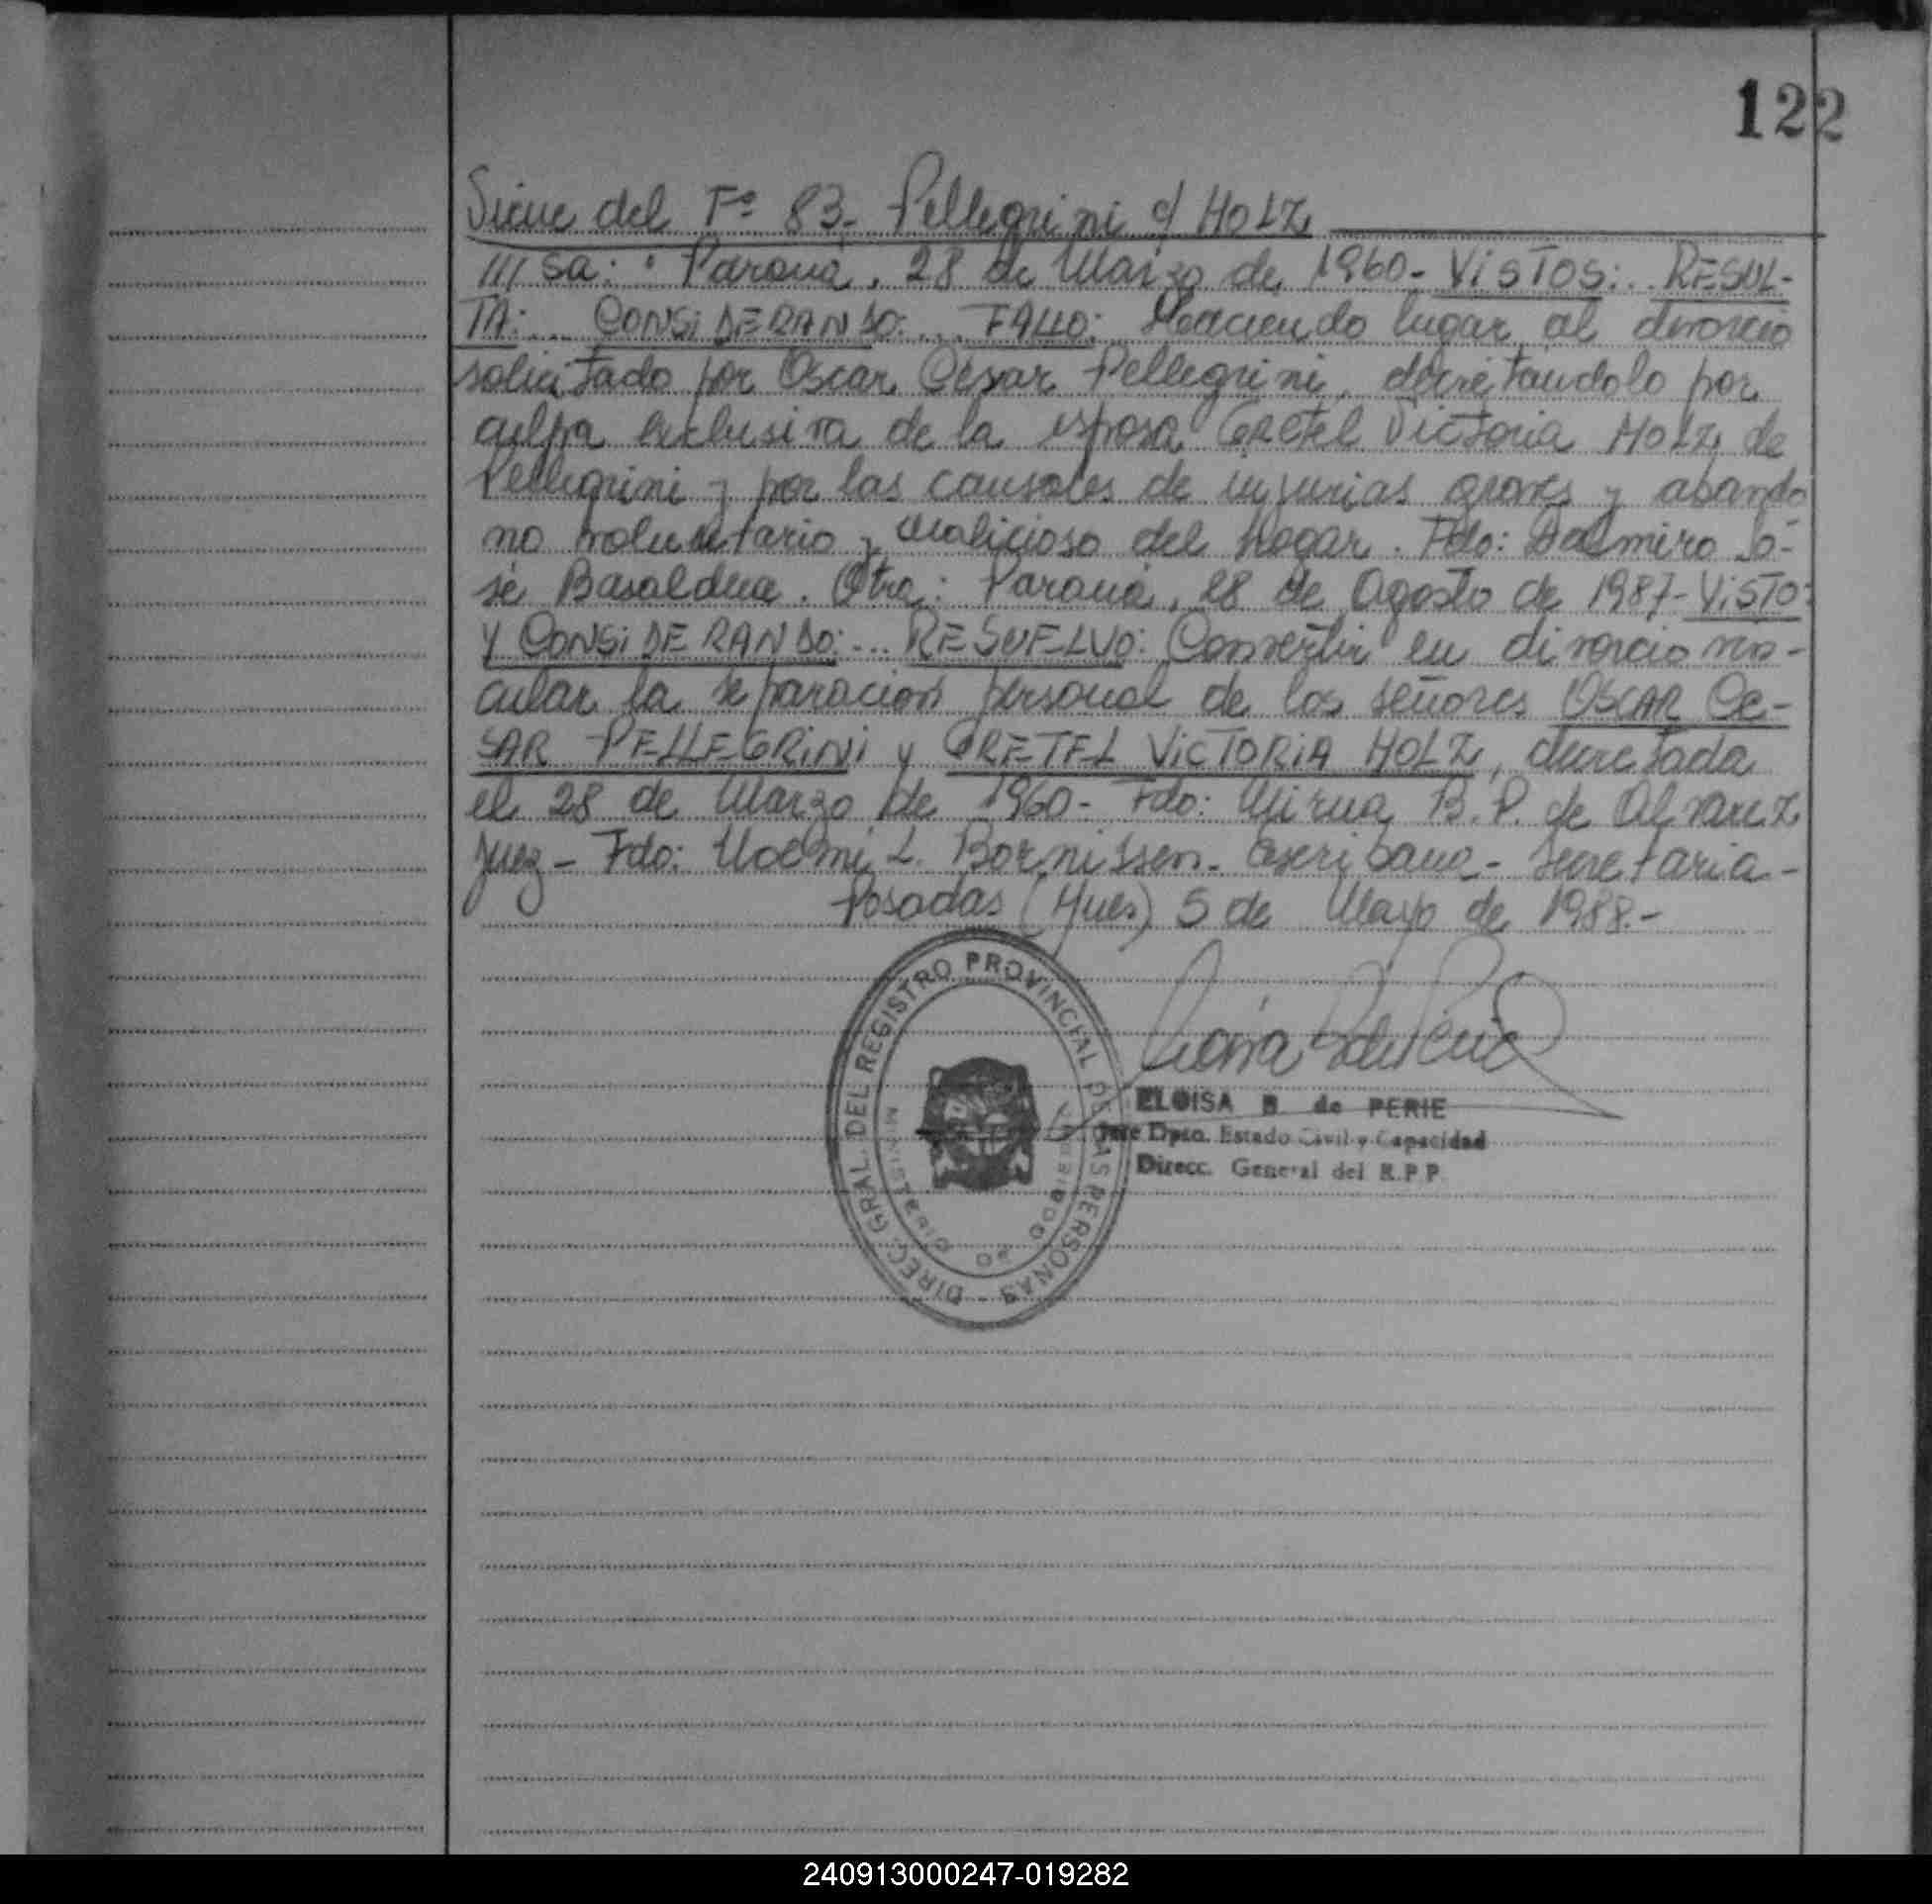 122
Sigue del Fº 83- Pellegrini c/ HOLZ
/// sa: "Paraná, 28 de Marzo de 1960- VISTOS:.. RESUL-
TA:... CONSIDERANDO:... FALLO: Haciendo lugar al divorcio
solicitado por Oscar César Pellegrini, decretándolo por
culpa exclusiva de la esposa Gretel Victoria Holz de
Pellegrini y por las causales de injurias graves y abando
no voluntario y malicioso del hogar. Fdo: Dalmiro Jo-
sé Basaldua. Otra: Paraná, 28 de Agosto de 1987- VISTO:
Y CONSIDERANDO:... RESUELVO: Convertir en divorcio vin-
cular la separación personal de los señores OSCAR CE-
SAR PELLEGRINI y GRETEL VICTORIA HOLZ, decretada
el 28 de Marzo de 1960- Fdo: Mirna B.P. de Alvarez
Juez- Fdo: Noemi L. Bornissen- Escribana- Secretaria-
Posadas (Mnes) 5 de Mayo de 1988.-
DIREC. GRAL. DEL REGISTRO PROVINCIAL DE LAS PERSONAS -
ELOISA B. de PERIE
Jefe Dpto. Estado Civil y Capacidad
Direcc. General del R.P.P.
240913000247-019282